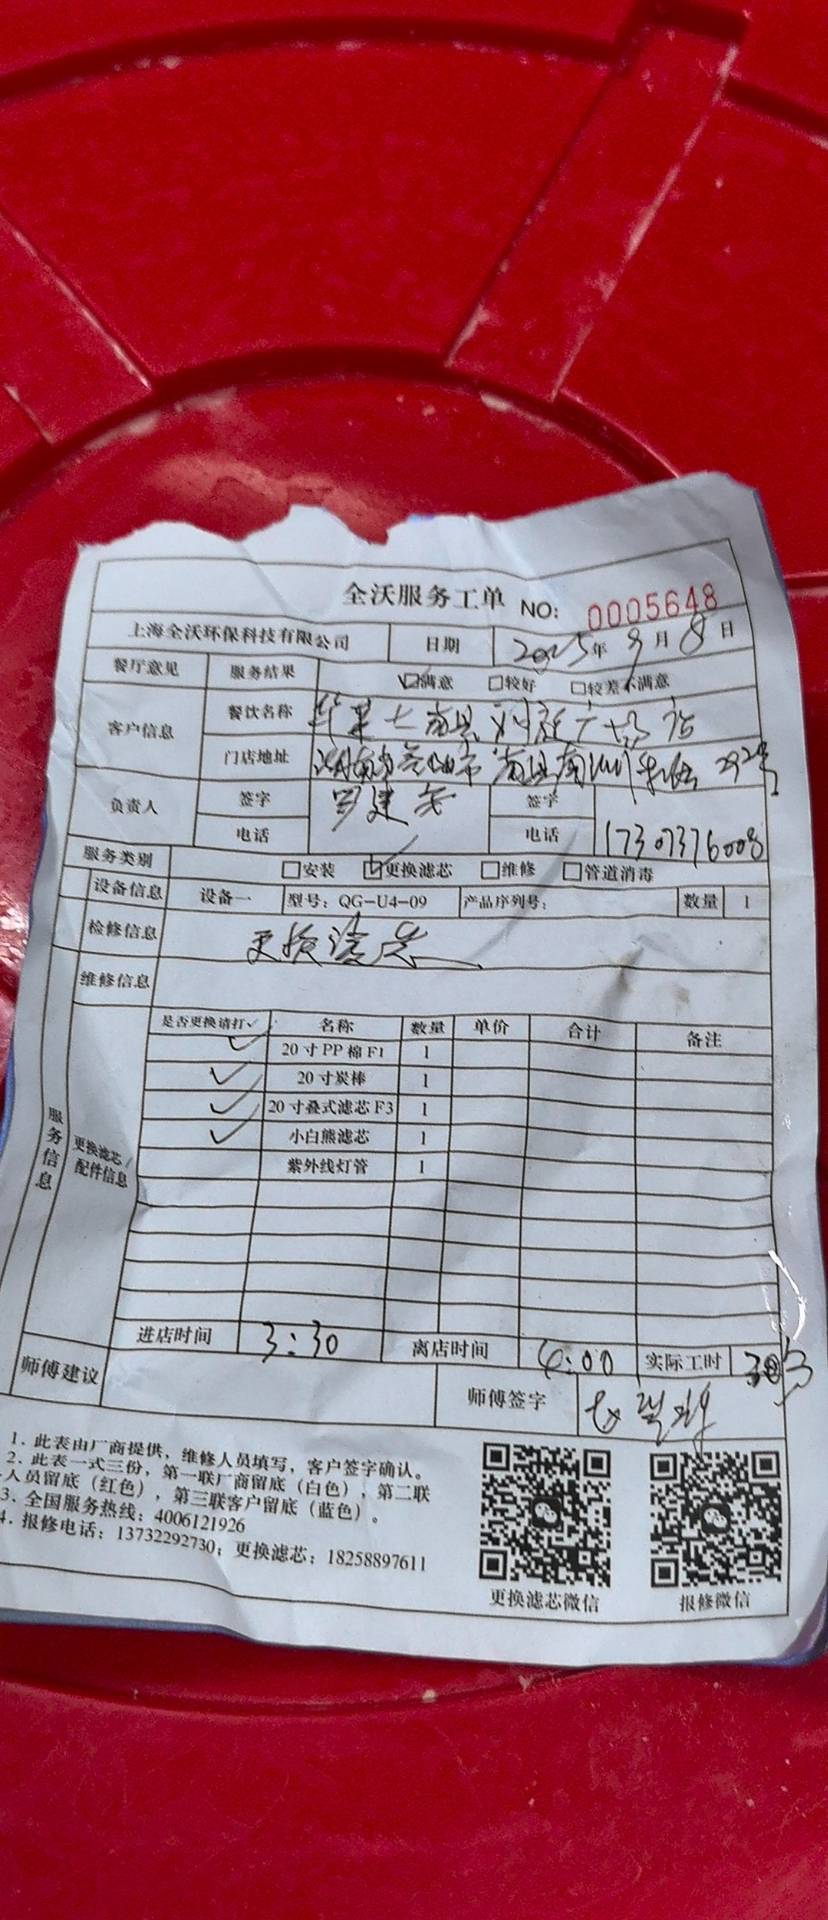 全沃服务工单 NO: 0005648
上海全沃环保科技有限公司 日期 2025年9月8日
餐厅意见 服务结果 ☑满意 □较好 □较差不满意
客户信息 餐饮名称 华莱士南县 广场店
门店地址 湖南省益阳市南县南洲 292号
负责人 签字 罗建 签字
电话 电话 17307376008
服务类别 □安装 ☑更换滤芯 □维修 □管道消毒
设备信息 设备一 型号: QG-U4-09 产品序列号: 数量 1
检修信息 更换滤芯
维修信息
服务信息
更换滤芯/配件信息
是否更换请打✓ 名称 数量 单价 合计 备注
✓ 20寸PP棉F1 1
✓ 20寸炭棒 1
✓ 20寸叠式滤芯F3 1
✓ 小白熊滤芯 1
紫外线灯管 1
进店时间 3:30 离店时间 4:00 实际工时
师傅建议 师傅签字
1. 此表由厂商提供, 维修人员填写, 客户签字确认。
2. 此表一式三份, 第一联厂商留底 (白色) , 第二联
人员留底 (红色) , 第三联客户留底 (蓝色) 。
3. 全国服务热线: 4006121926
4. 报修电话: 13732292730; 更换滤芯: 18258897611
更换滤芯微信 报修微信